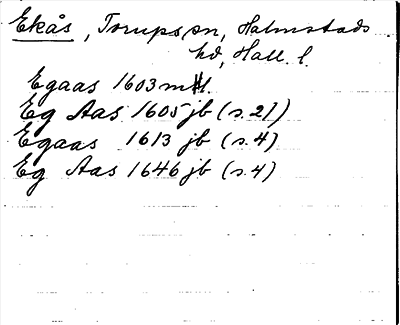 Ekås, Torups sn, Halmstads
hd, Hall. l.
Egaas 1603 mtl.
Eg Aas 1605 jb (s. 21)
Egaas 1613 jb (s. 4)
Eg Aas 1646 jb (s. 4)